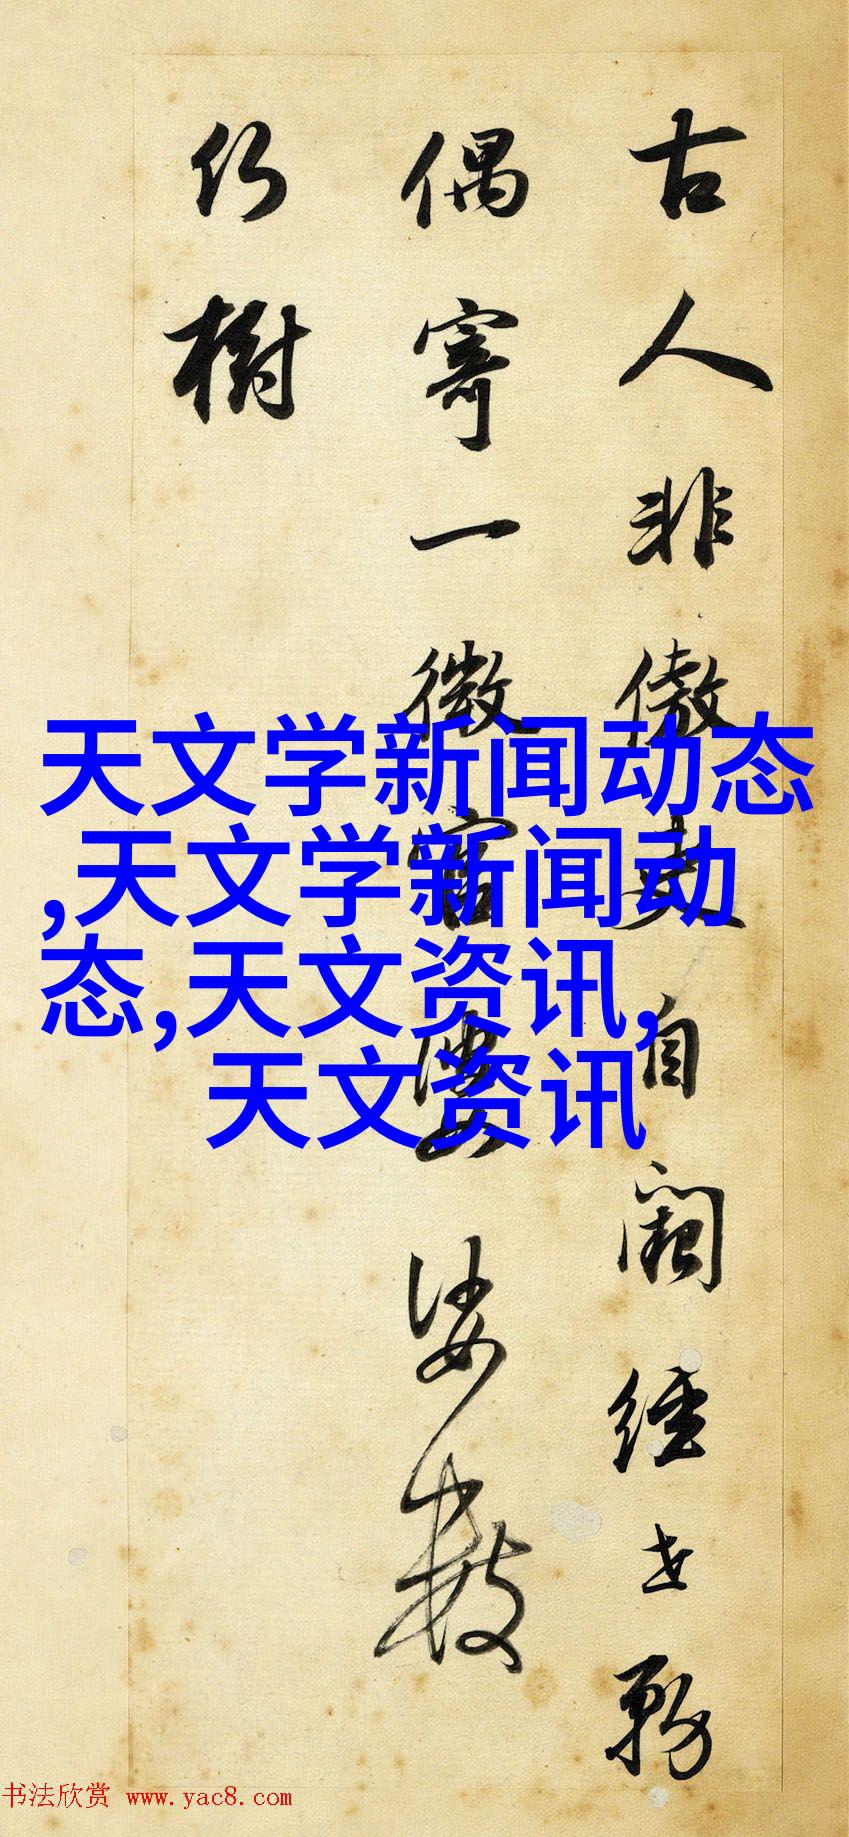 古人非傲吏自闕經世務
偶寄一微官婆娑數
樹
天文学新闻动态
,天文学新闻动
态,天文资讯,
天文资讯
书法欣赏 www.yac8.com